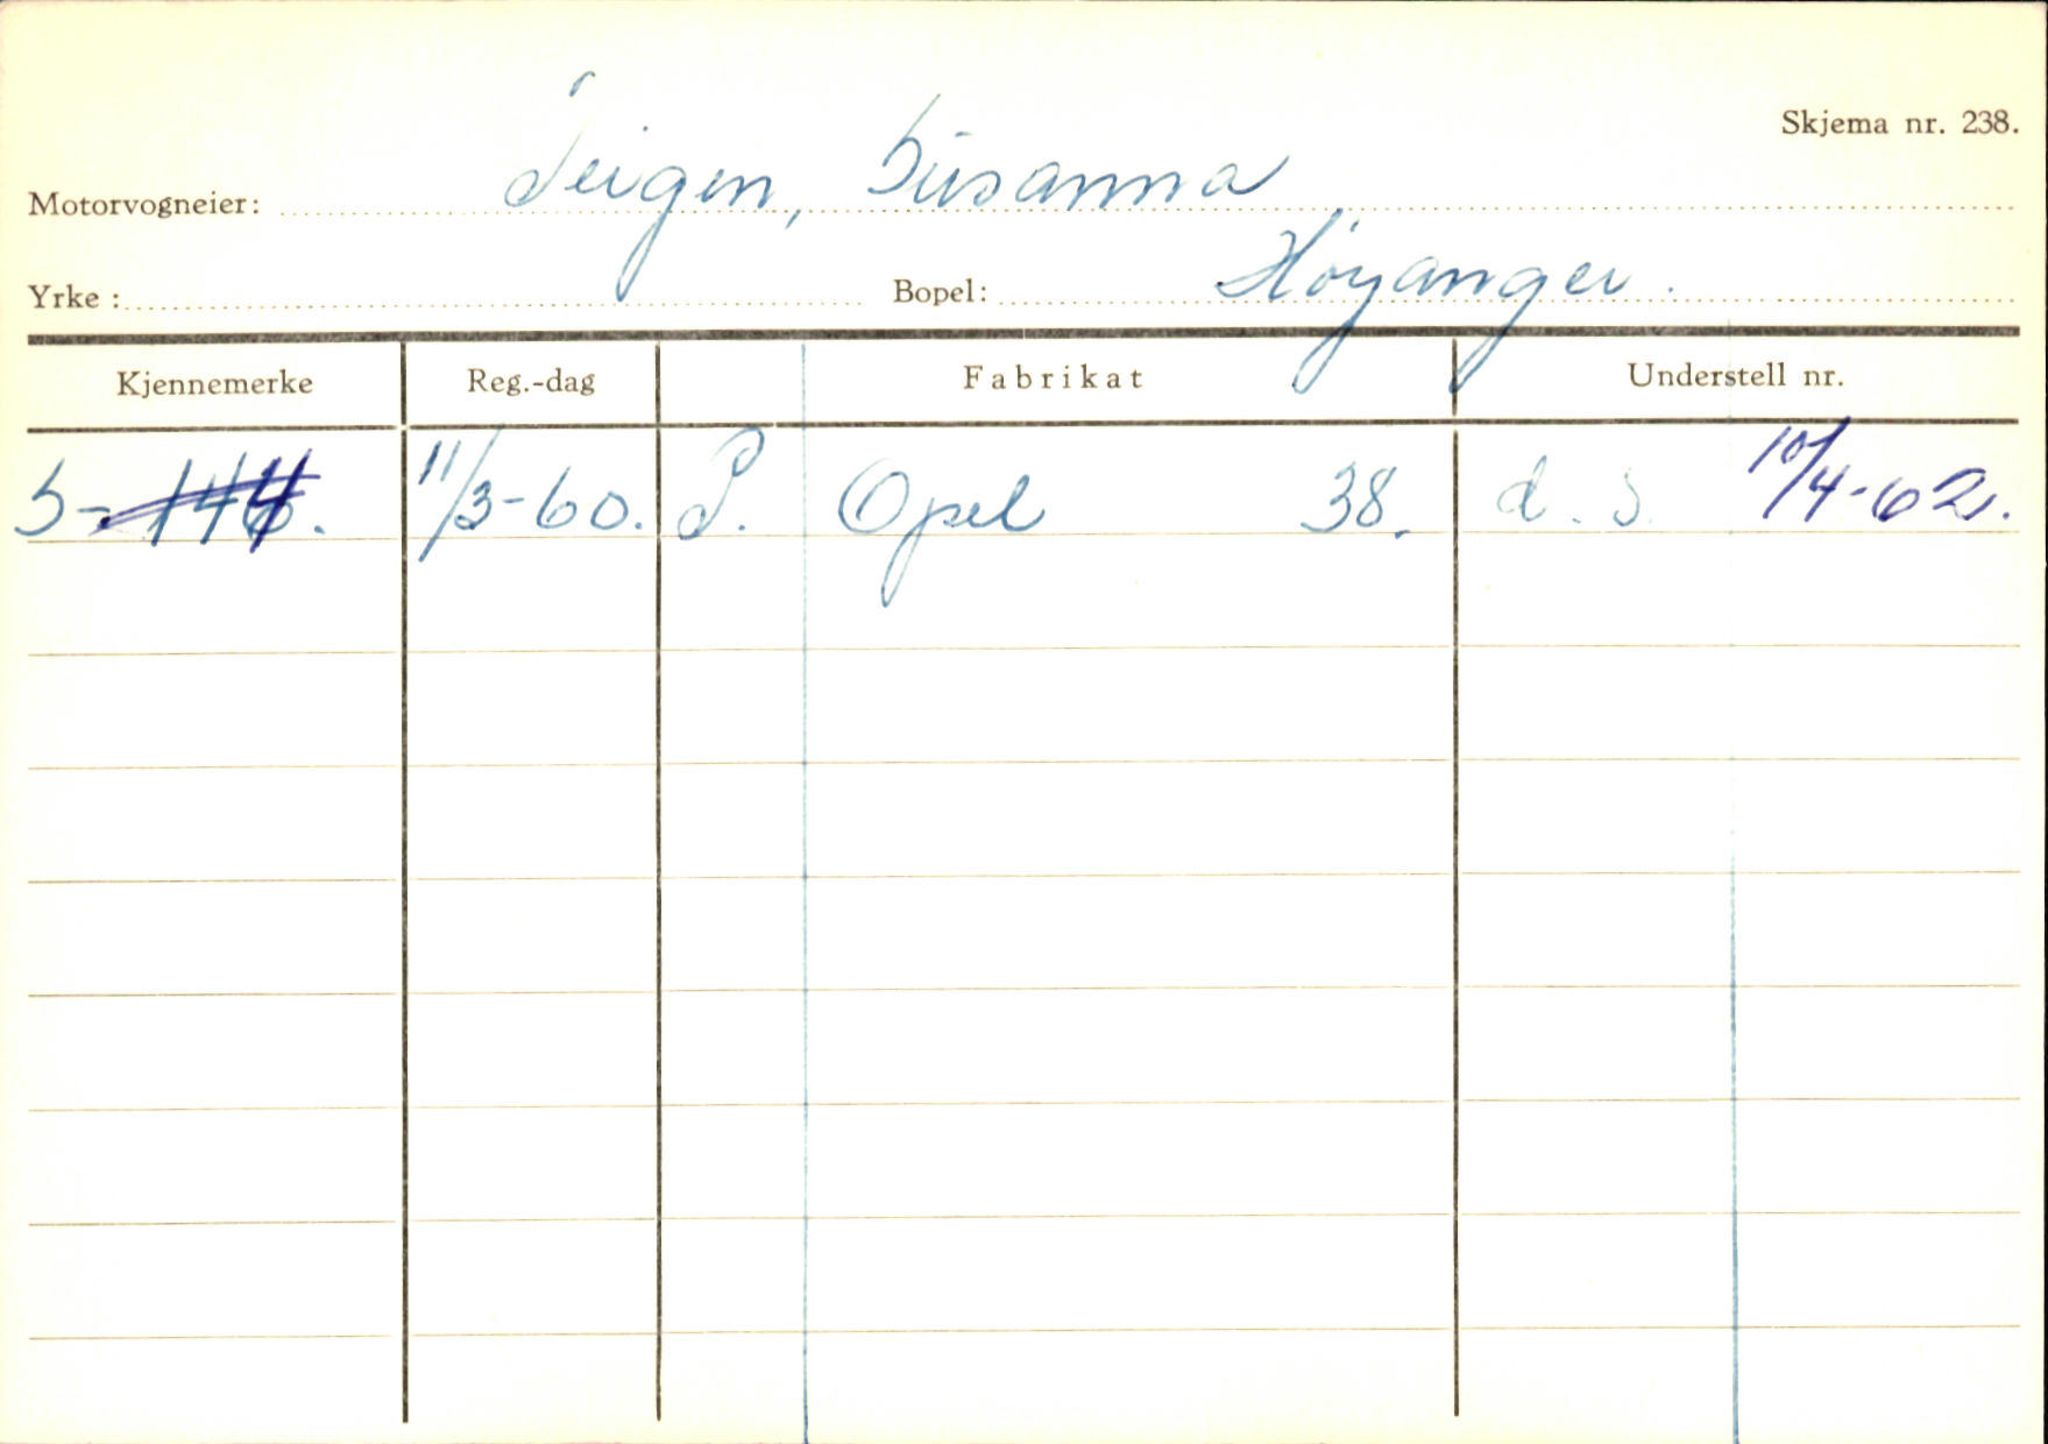 Skjema nr. 238.
Motorvogneier: Teigen, Susanna
Yrke : Bopel: Höyanger.
Kjennemerke Reg.-dag Fabrikat Understell nr.
S- 11/3-60. P. Opel 38. d. s. 10/4-62.